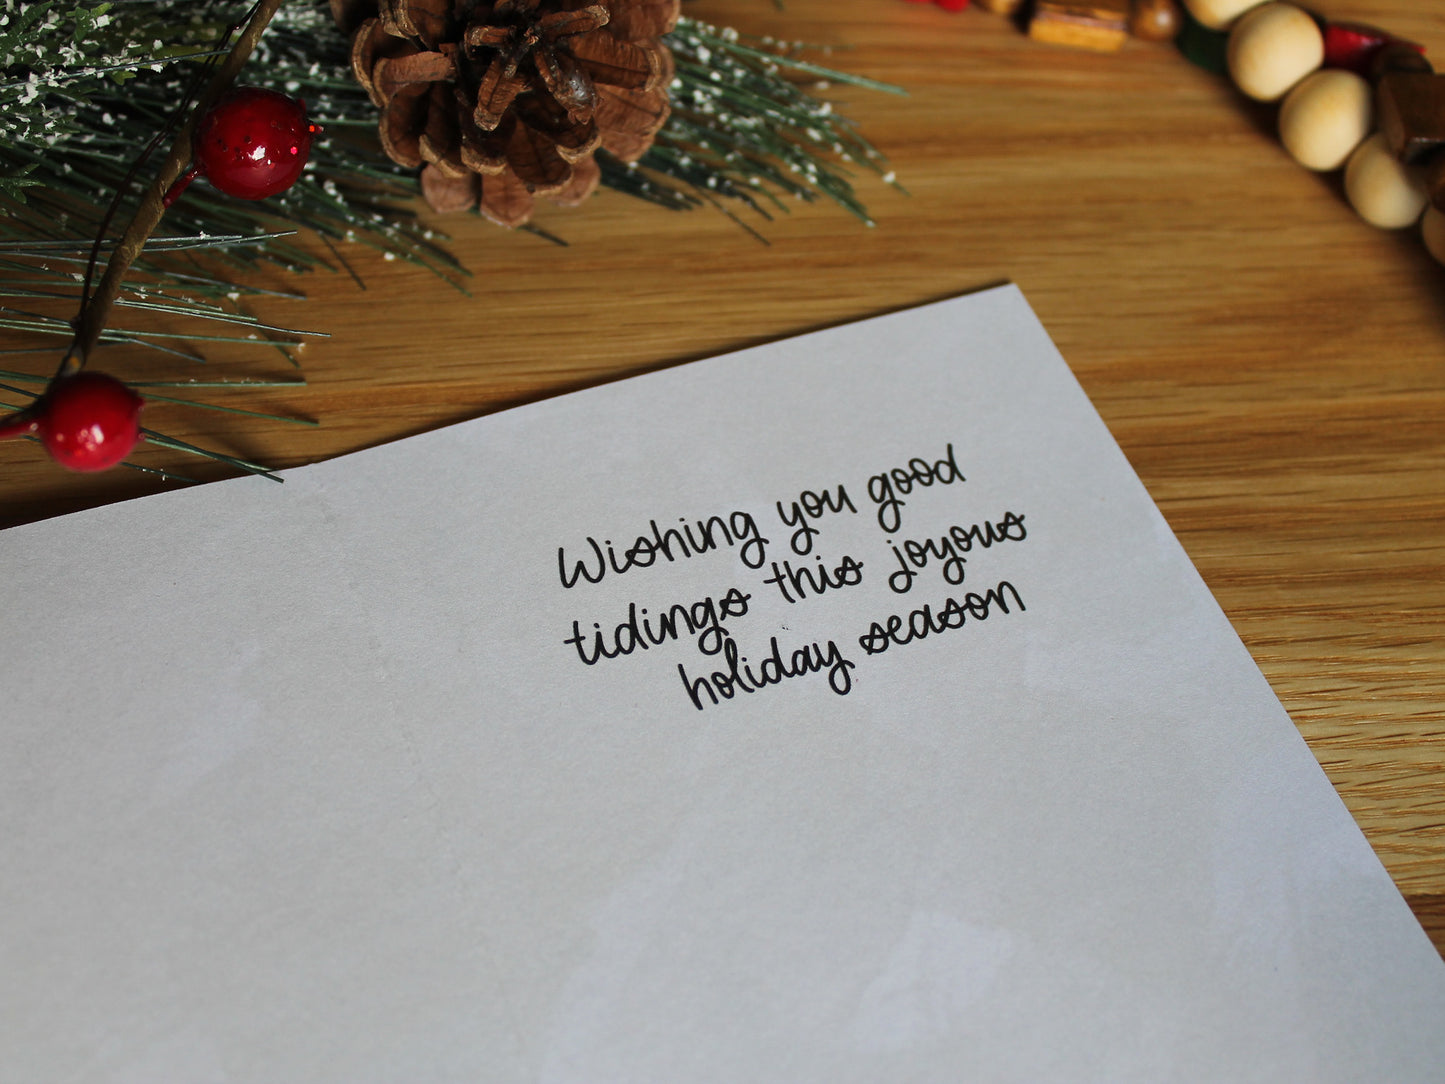 Wishing you good
tidings this joyous
holiday season